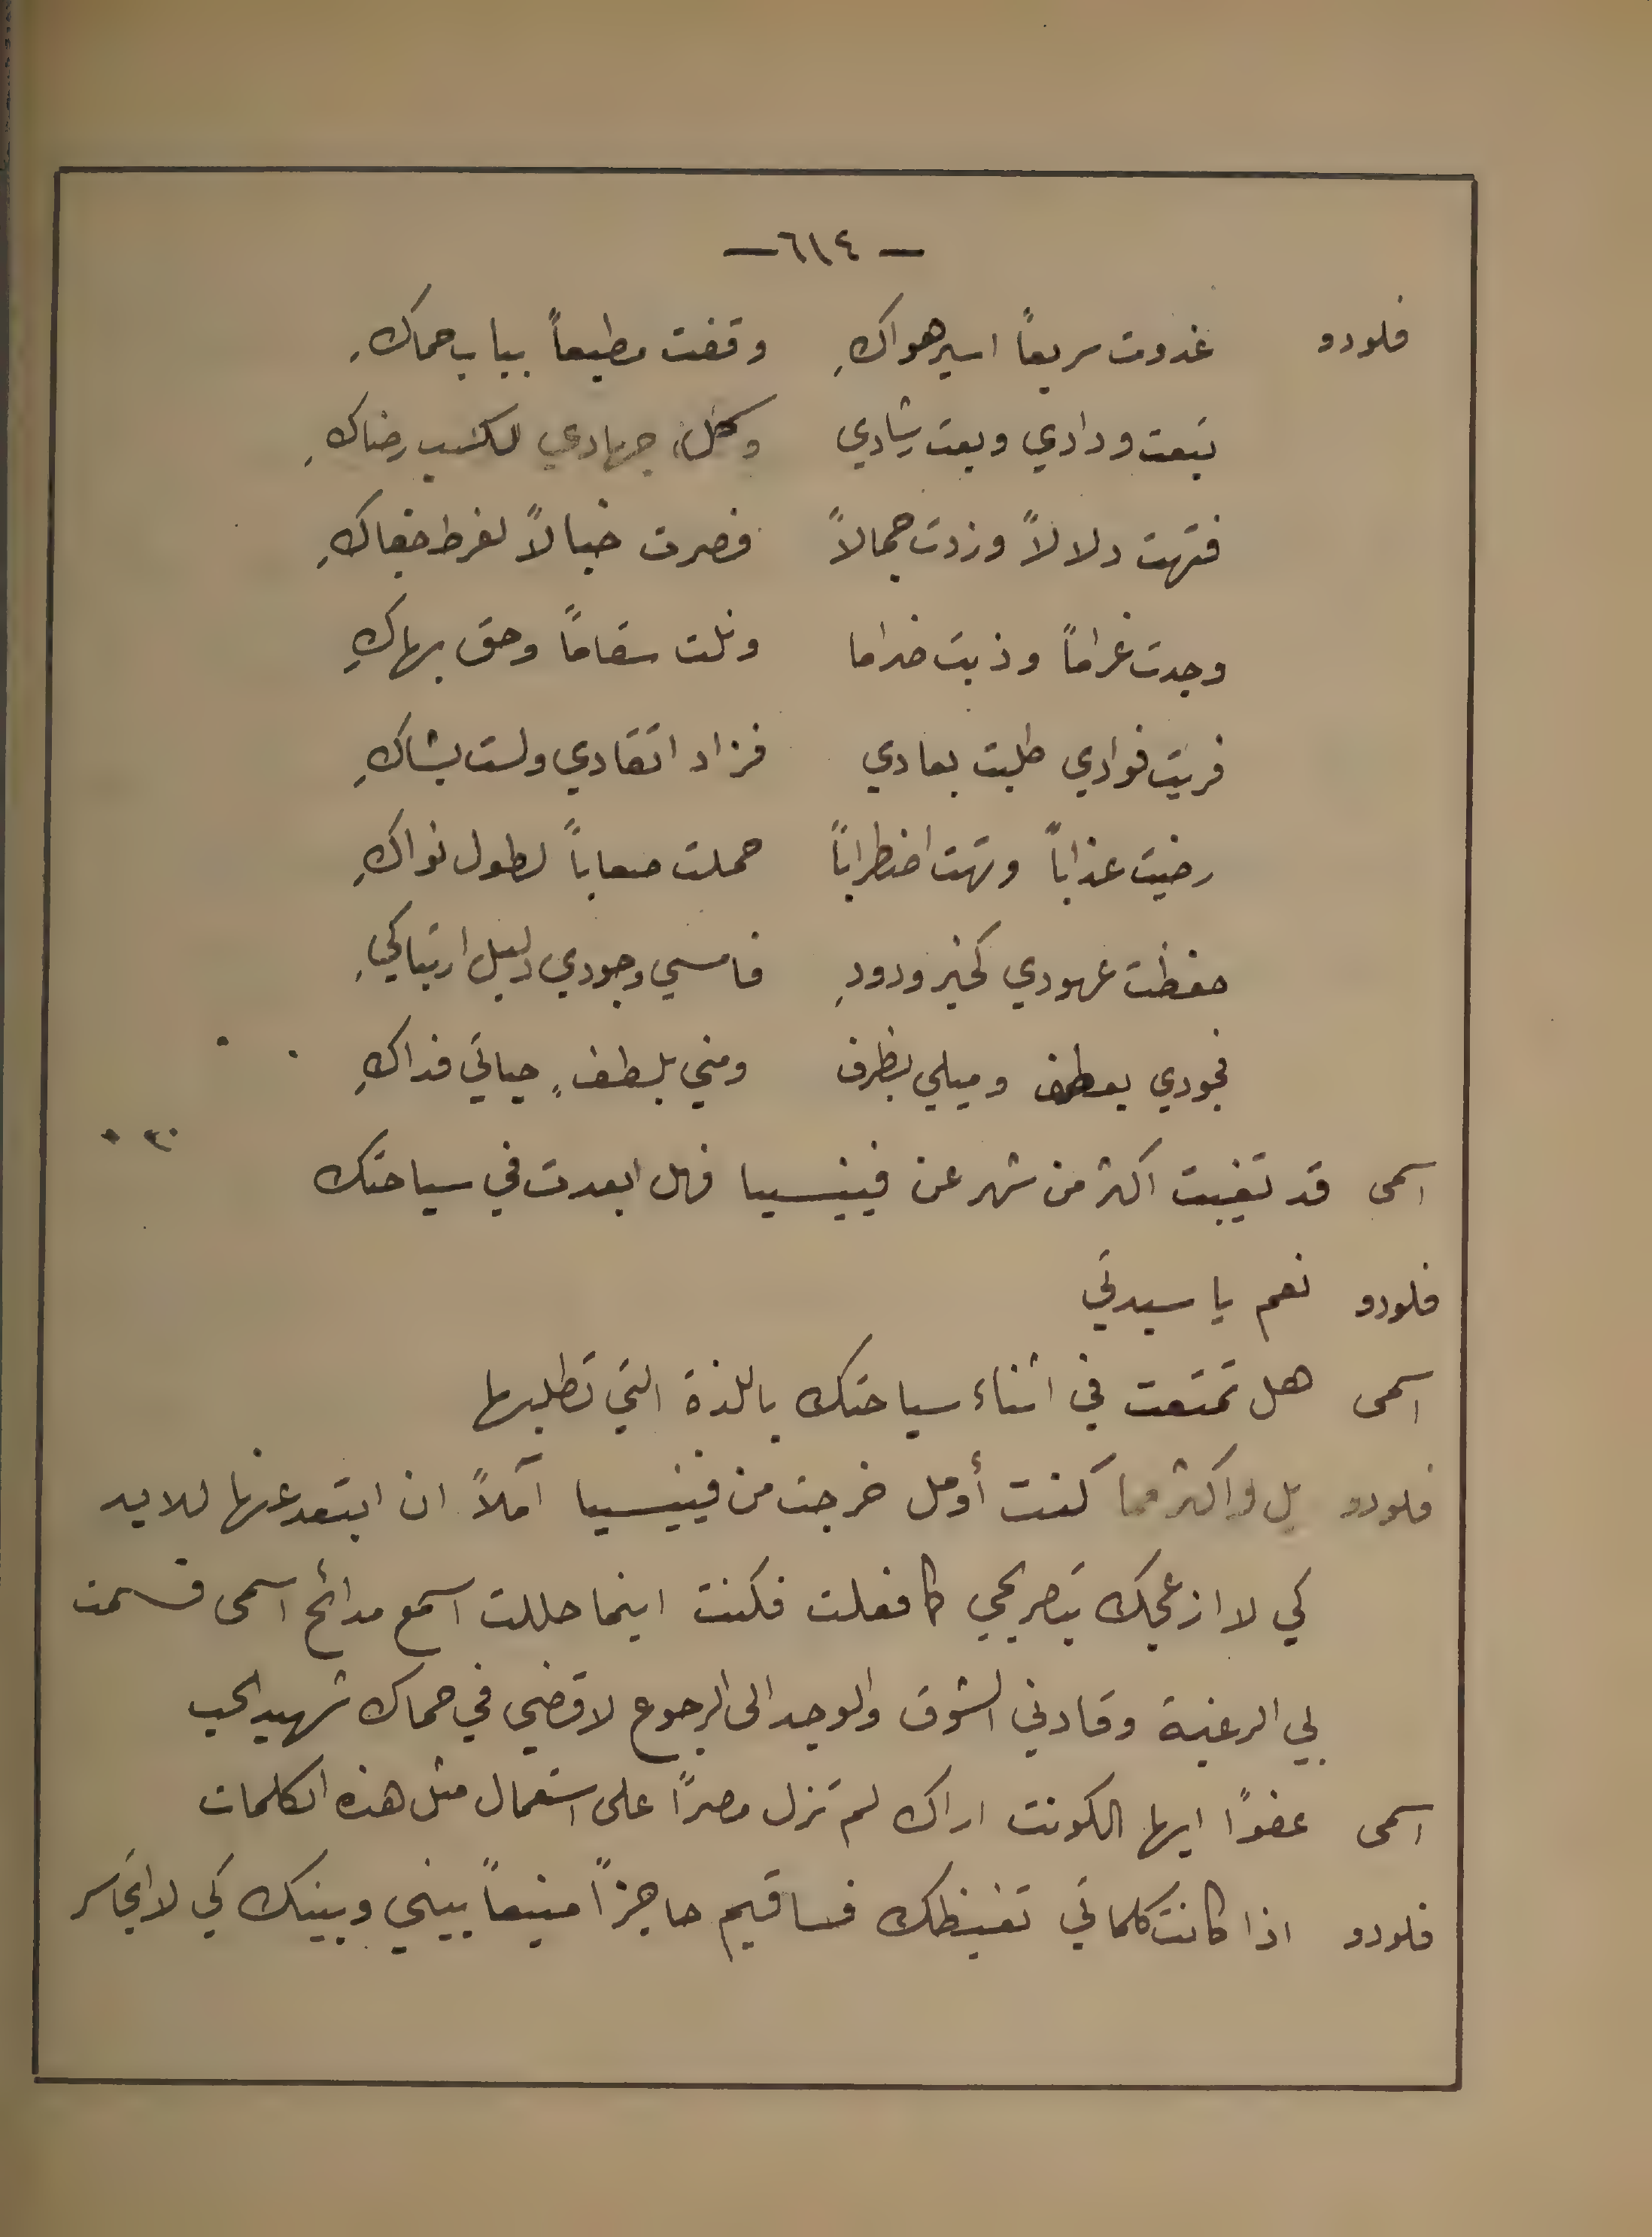 — ٦١٤ —
فلودو غدوت سريعاً اسير هواكِ وقفت مطيعاً بباب حماكِ
تبعت ودادي وبعت رشادي وكل جهادي لكسب رضاكِ
فتهت دلالاً وزدت جمالاً فصرت خيالاً لفرط جفاكِ
وجدت غراماً وذبت ضراما ونلت سقاماً وحق بهاكِ
فريت فوادي طلبت بعادي فزاد اتقادي ولست بشاكِ
رضيت عذاباً وتهت اضطراباً حملت صعاباً لطول نواكِ
حفظت عهودي كخير ودودِ فامسي وجودي دليل ارتباكي
فجودي بعطف وميلي بظرف ومني بلطفٍ حياتي فداكِ
اسمى قد تغيبت اكثر من شهر عن فينيسيا فهل ابعدت في سياحتك
فلودو نعم يا سيدتي
اسمى هل تمتعت في اثناء سياحتك باللذة التي تطلبها
فلودو بل واكثر مما كنت أومل خرجت من فينيسيا آملاً ان ابتعد عنها للابد
كي لا ازعجك بتصريحي كما فعلت فكنت اينما حللت اسمع مدائح اسمى فسمت
بي الرغبة وقادني الشوق والوجد الى الرجوع لاقضي في حماك شهيد الحب
اسمى عفوًا ايها الكونت اراك لم تزل مصرًا على استعمال مثل هذه الكلمات
فلودو اذا كانت كلماتي تغيظك فساقيم حاجزاً منيعاً بيني وبينك كي لا اتجاسر